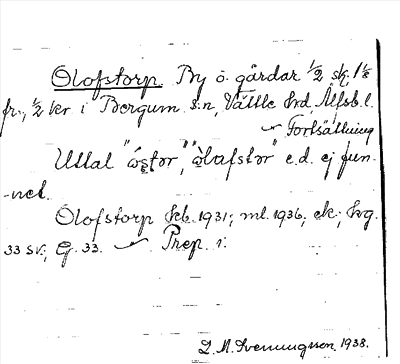 Olofstorp By o. gårdar 1/2 sk, 1 1/8
fr., 1/2 kr i Bergum s:n, Vättle hrd, Älfsb. l.
Fortsättning
Uttal "óstor", "òlafstor" e.d. ej fun-
-net.
Olofstorp kb. 1931; ml. 1936, ek; hvg.
33 sv.; G. 33. Prep. i:
D. M. Svenungsson 1938.